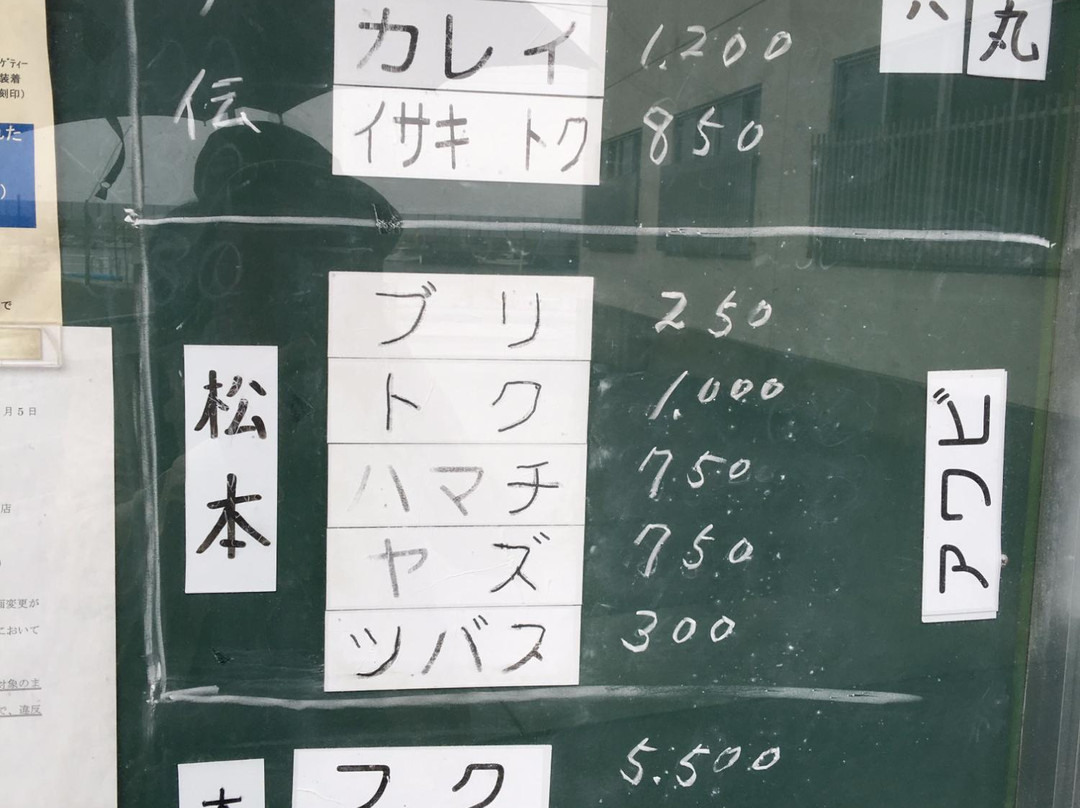 カレイ 1.200
丸
伝
イサキ トク 850
ブリ 250
松本
トク 1.000
ハマチ 750
ヤズ 750
ツバス 300
アワビ
フク 5.500
ゲティー
装着
刻印)
れた
)
で
月5日
店
面変更が
において
対象のま
で、違反